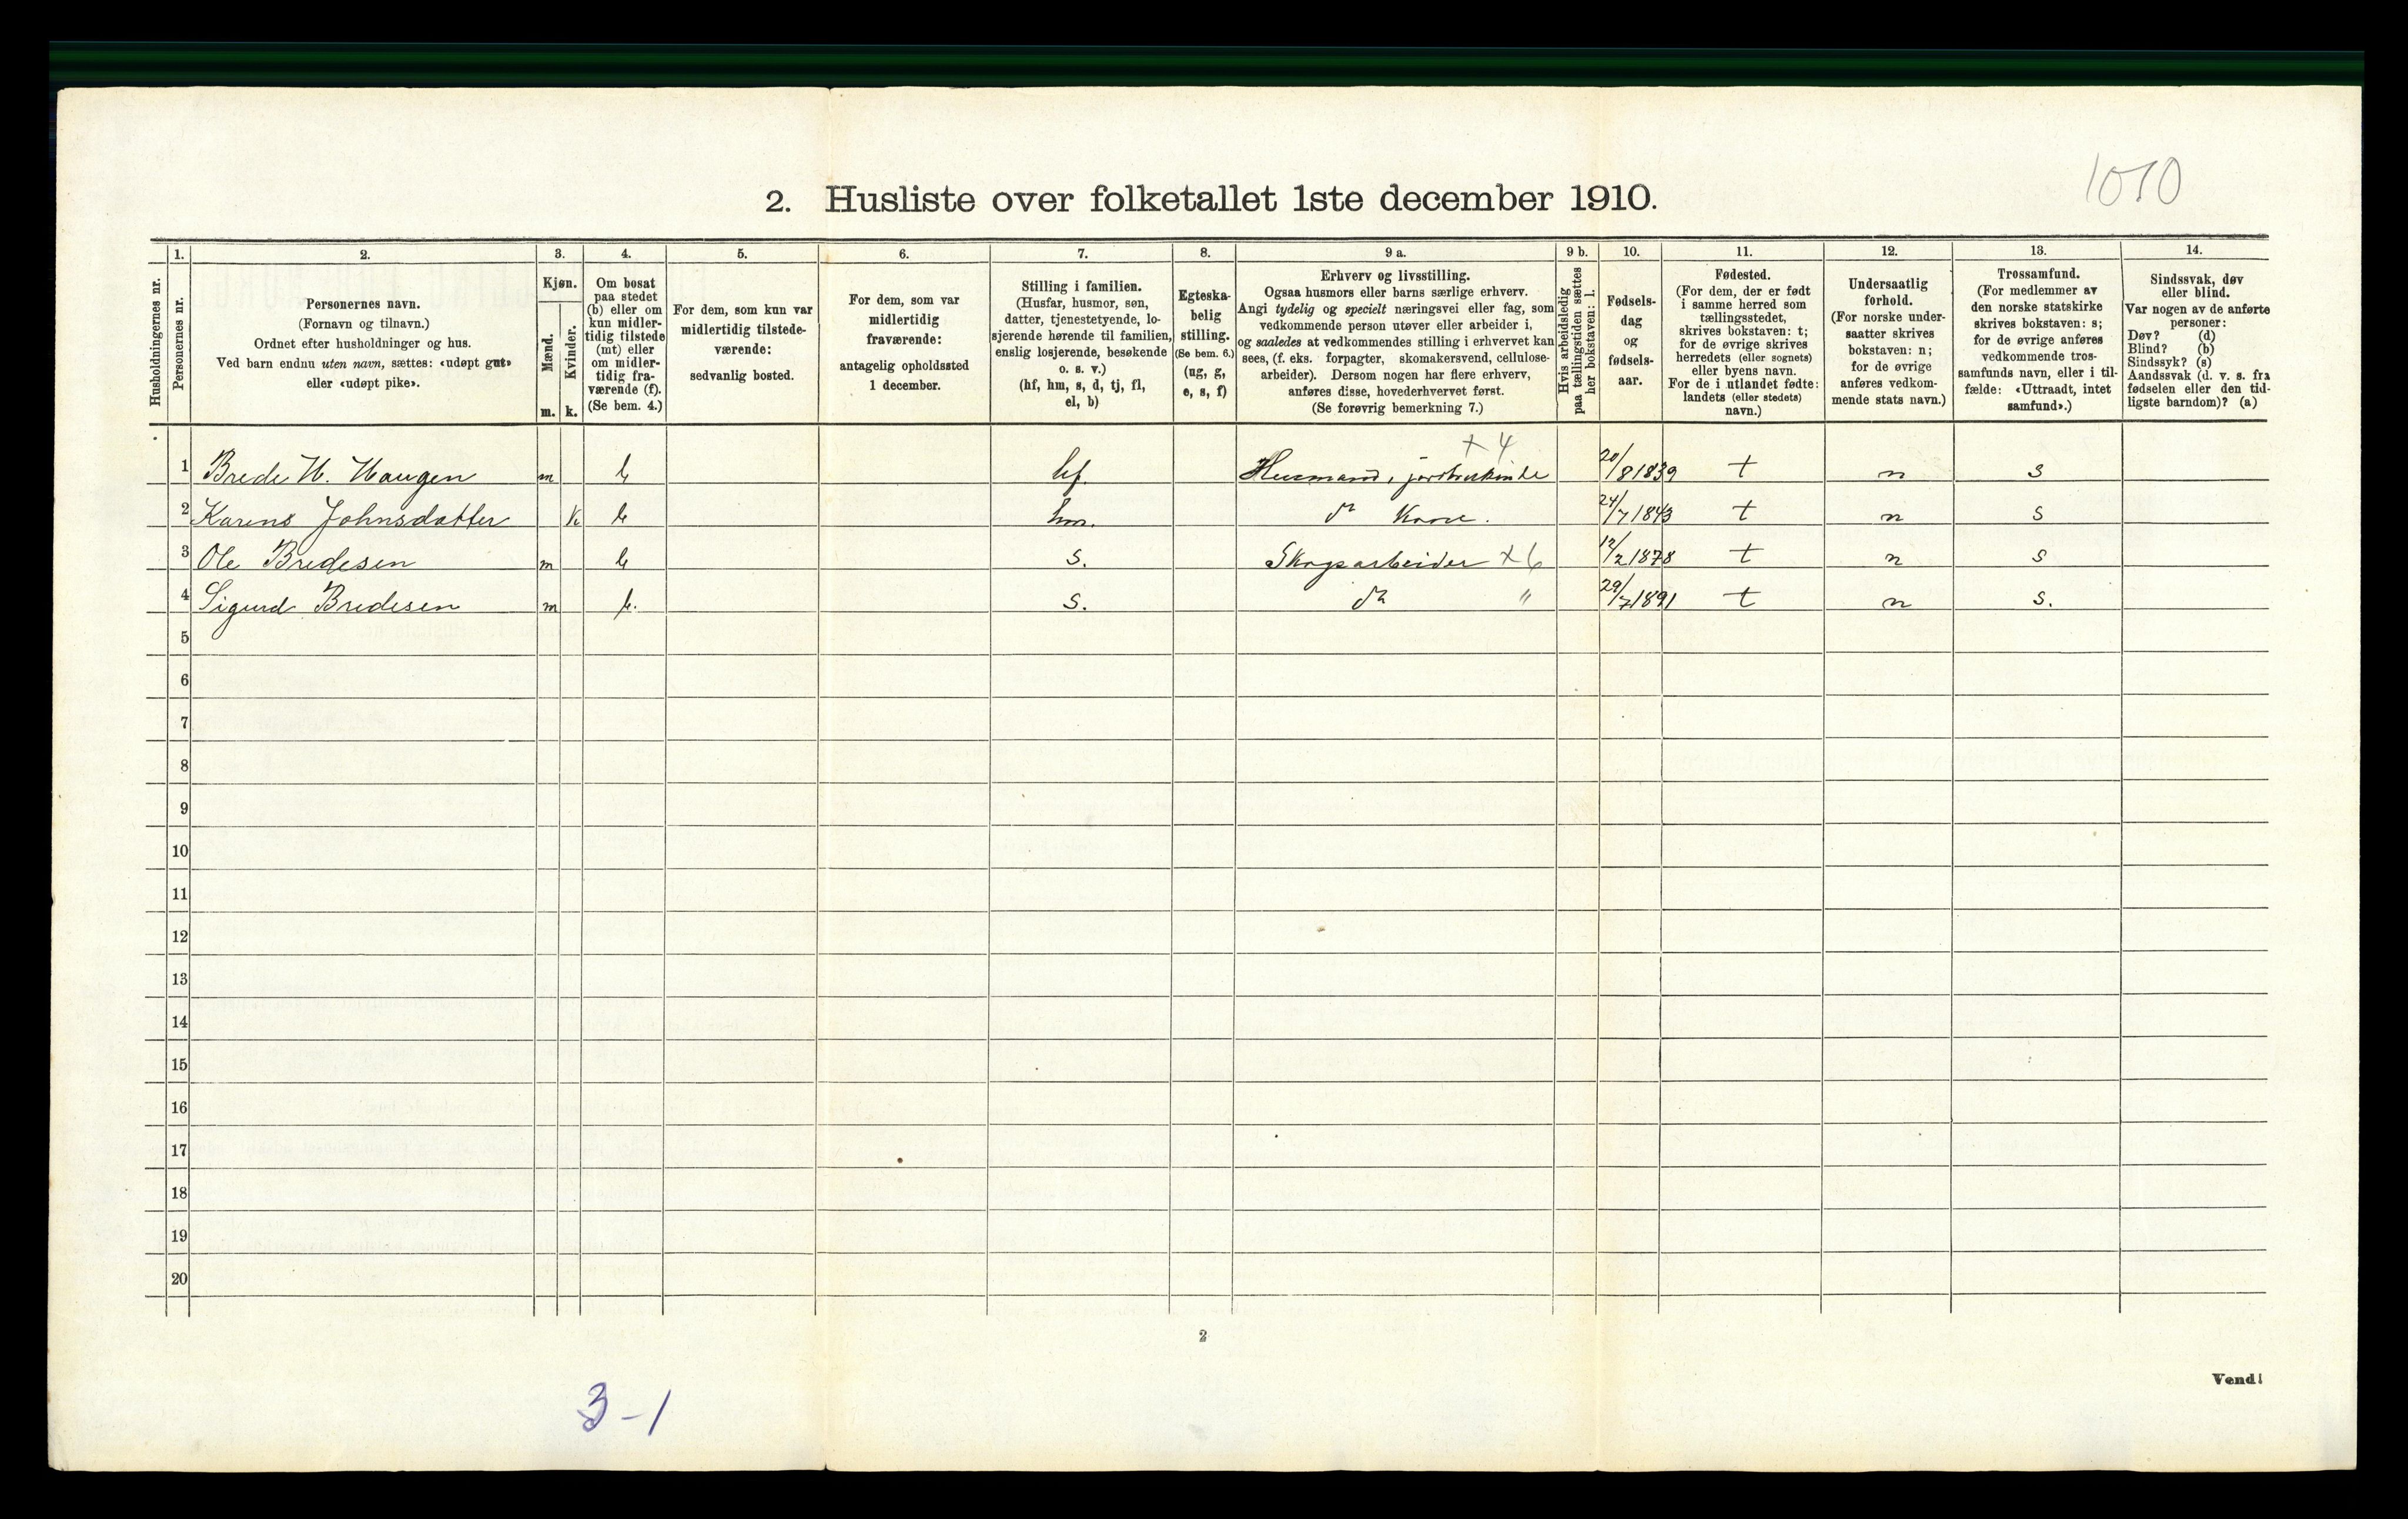 1010
2. Husliste over folketallet 1ste december 1910.
1. 2. 3. 4. 5. 6. 7. 8. 9 a. 9 b. 10. 11. 12. 13. 14.
Husholdningernes nr.
Personernes nr.
Personernes navn.
(Fornavn og tilnavn.)
Ordnet efter husholdninger og hus.
Ved barn endnu uten navn, sættes: «udøpt gut»
eller «udøpt pike».
Kjøn.
Mænd.
Kvinder.
m. k.
Om bosat
paa stedet
(b) eller om
kun midler-
tidig tilstede
(mt) eller
om midler-
tidig fra-
værende (f).
(Se bem. 4.)
For dem, som kun var
midlertidig tilstede-
værende:
sedvanlig bosted.
For dem, som var
midlertidig
fraværende:
antagelig opholdssted
1 december.
Stilling i familien.
(Husfar, husmor, søn,
datter, tjenestetyende, lo-
sjerende hørende til familien,
enslig losjerende, besøkende
o. s. v.)
(hf, hm, s, d, tj, fl,
el, b)
Egteska-
belig
stilling.
(Se bem. 6.)
(ug, g,
e, s, f)
Erhverv og livsstilling.
Ogsaa husmors eller barns særlige erhverv.
Angi tydelig og specielt næringsvei eller fag, som
vedkommende person utøver eller arbeider i,
og saaledes at vedkommendes stilling i erhvervet kan
sees, (f. eks. forpagter, skomakersvend, cellulose-
arbeider). Dersom nogen har flere erhverv,
anføres disse, hovederhvervet først.
(Se forøvrig bemerkning 7.)
Hvis arbeidsledig
paa tællingstiden sættes
her bokstaven: l.
Fødsels-
dag
og
fødsels-
aar.
Fødested.
(For dem, der er født
i samme herred som
tællingsstedet,
skrives bokstaven: t;
for de øvrige skrives
herredets (eller sognets)
eller byens navn.
For de i utlandet fødte:
landets (eller stedets)
navn.)
Undersaatlig
forhold.
(For norske under-
saatter skrives
bokstaven: n;
for de øvrige
anføres vedkom-
mende stats navn.)
Trossamfund.
(For medlemmer av
den norske statskirke
skrives bokstaven: s;
for de øvrige anføres
vedkommende tros-
samfunds navn, eller i til-
fælde: «Uttraadt, intet
samfund».)
Sindssvak, døv
eller blind.
Var nogen av de anførte
personer:
Døv? (d)
Blind? (b)
Sindssyk? (s)
Aandssvak (d. v. s. fra
fødselen eller den tid-
ligste barndom)? (a)
+ 4
1 Brede H. Haugen m b hf. Husmand, jordbrukende 20/8 1839 t n s
2 Karens Johnsdatter k b hm. do Kone. 24/7 1843 t n s
3 Ole Bredesen m b s. Skogsarbeider x 6 12/2 1878 t n s
4 Sigurd Bredesen m b. s. do " 29/7 1891 t n s.
5
6
7
8
9
10
11
12
13
14
15
16
17
18
19
20
2
Vend!
3-1